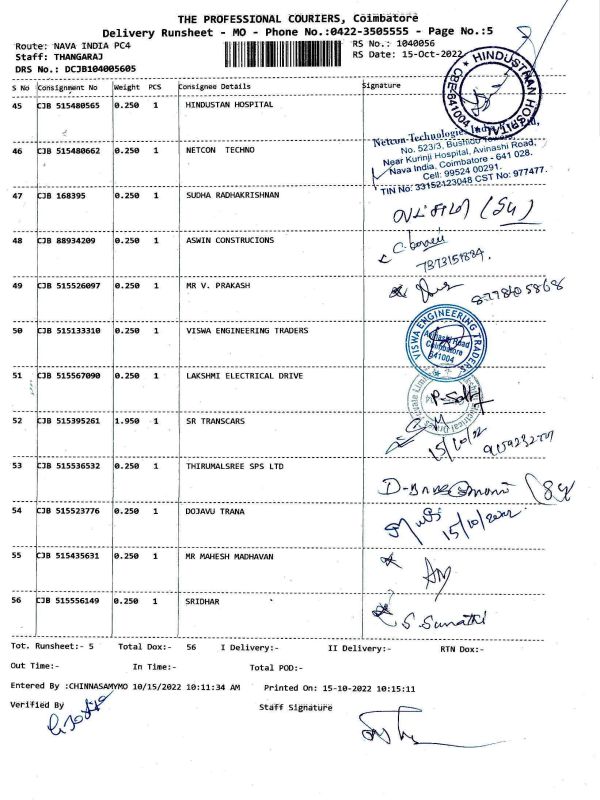 THE PROFESSIONAL COURIERS, Coimbatore
Delivery Runsheet - MO - Phone No.:0422-3505555 - Page No.:5
Route: NAVA INDIA PC4 RS No.: 1040056
Staff: THANGARAJ RS Date: 15-Oct-2022
DRS No.: DCJB104005605
S No Consignment No Weight PCS Consignee Details Signature
45 CJB 515480565 0.250 1 HINDUSTAN HOSPITAL
HINDUSTHAN HOSPITAL
CBE-641004
46 CJB 515480662 0.250 1 NETCON TECHNO
Netcon Technologies India Pvt. Ltd,
No. 523/3, Towers,
Near Kurinji Hospital, Avinashi Road,
Nava India, Coimbatore - 641 028.
Cell: 99524 00291.
TIN No: 33152123048 CST No: 977477.
47 CJB 168395 0.250 1 SUDHA RADHAKRISHNAN
48 CJB 88934209 0.250 1 ASWIN CONSTRUCIONS
7373151884.
49 CJB 515526097 0.250 1 MR V. PRAKASH
50 CJB 515133310 0.250 1 VISWA ENGINEERING TRADERS
VISWA ENGINEERING TRADERS
Avinashi Road
Coimbatore
641004
51 CJB 515567090 0.250 1 LAKSHMI ELECTRICAL DRIVE
52 CJB 515395261 1.950 1 SR TRANSCARS
15/10/22
53 CJB 515536532 0.250 1 THIRUMALSREE SPS LTD
54 CJB 515523776 0.250 1 DOJAVU TRANA
15/10/2022
55 CJB 515435631 0.250 1 MR MAHESH MADHAVAN
56 CJB 515556149 0.250 1 SRIDHAR
S. Sumathi
Tot. Runsheet:- 5 Total Dox:- 56 I Delivery:- II Delivery:- RTN Dox:-
Out Time:- In Time:- Total POD:-
Entered By :CHINNASAMYMO 10/15/2022 10:11:34 AM Printed On: 15-10-2022 10:15:11
Verified By Staff Signature